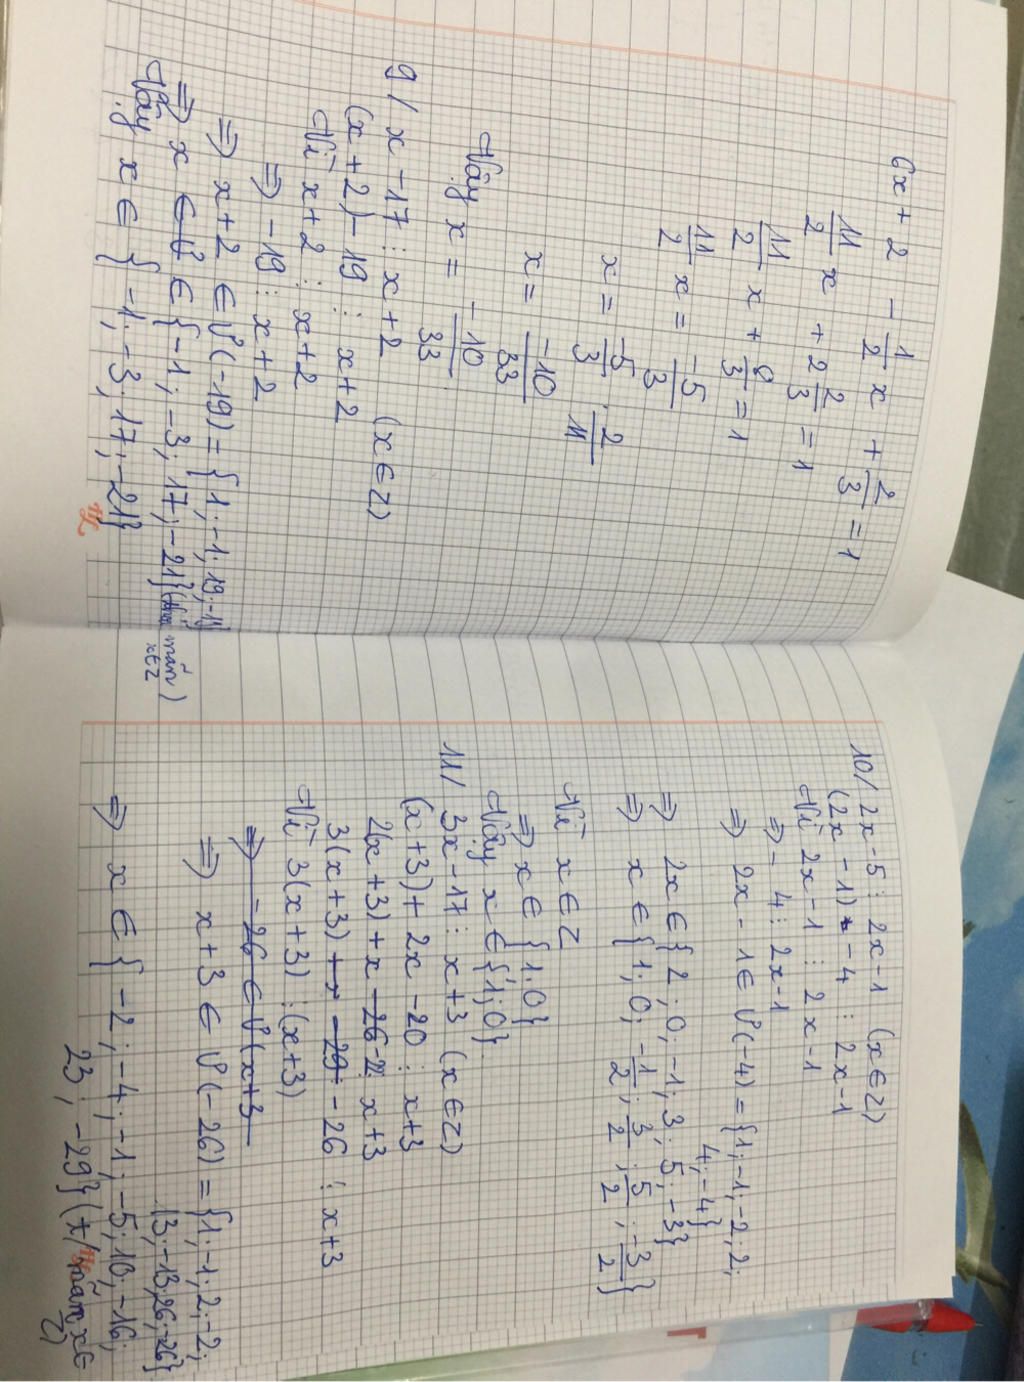 6x + 2 - 1/2 x + 2/3 = 1
11/2 x + 2 2/3 = 1
11/2 x + 8/3 = 1
11/2 x = -5/3
x = -5/3 . 2/11
x = -10/33
Vậy x = -10/33.
9/ x - 17 ⋮ x + 2 (x ∈ Z)
(x + 2) - 19 ⋮ x + 2
Vì x + 2 ⋮ x + 2
⇒ -19 ⋮ x + 2
⇒ x + 2 ∈ Ư(-19) = {1; -1; 19; -19}
⇒ x ∈ Ư ∈ {-1; -3; 17; -21} (thỏa mãn)
x ∈ Z
Vậy x ∈ {-1; -3; 17; -21}
10/ 2x - 5 ⋮ 2x - 1 (x ∈ Z)
(2x - 1) - 4 ⋮ 2x - 1
Vì 2x - 1 ⋮ 2x - 1
⇒ - 4 ⋮ 2x - 1
⇒ 2x - 1 ∈ Ư(-4) = {1; -1; -2; 2;
4; -4}
⇒ 2x ∈ {2; 0; -1; 3; 5; -3}
⇒ x ∈ {1; 0; -1/2; 3/2; 5/2; -3/2}
Vì x ∈ Z
⇒ x ∈ {1; 0}
Vậy x ∈ {1; 0}.
11/ 3x - 17 ⋮ x + 3 (x ∈ Z)
(x + 3) + 2x - 20 ⋮ x + 3
2(x + 3) + x - 26 ⋮ x + 3
3(x + 3) + - 29 - 26 ⋮ x + 3
Vì 3(x + 3) ⋮ (x + 3)
⇒ -26 ∈ Ư(x + 3
⇒ x + 3 ∈ Ư(-26) = {1; -1; 2; -2;
13; -13; 26; -26}
⇒ x ∈ {-2; -4; -1; -5; 10; -16;
23; -29} (t/mãn x ∈
Z)